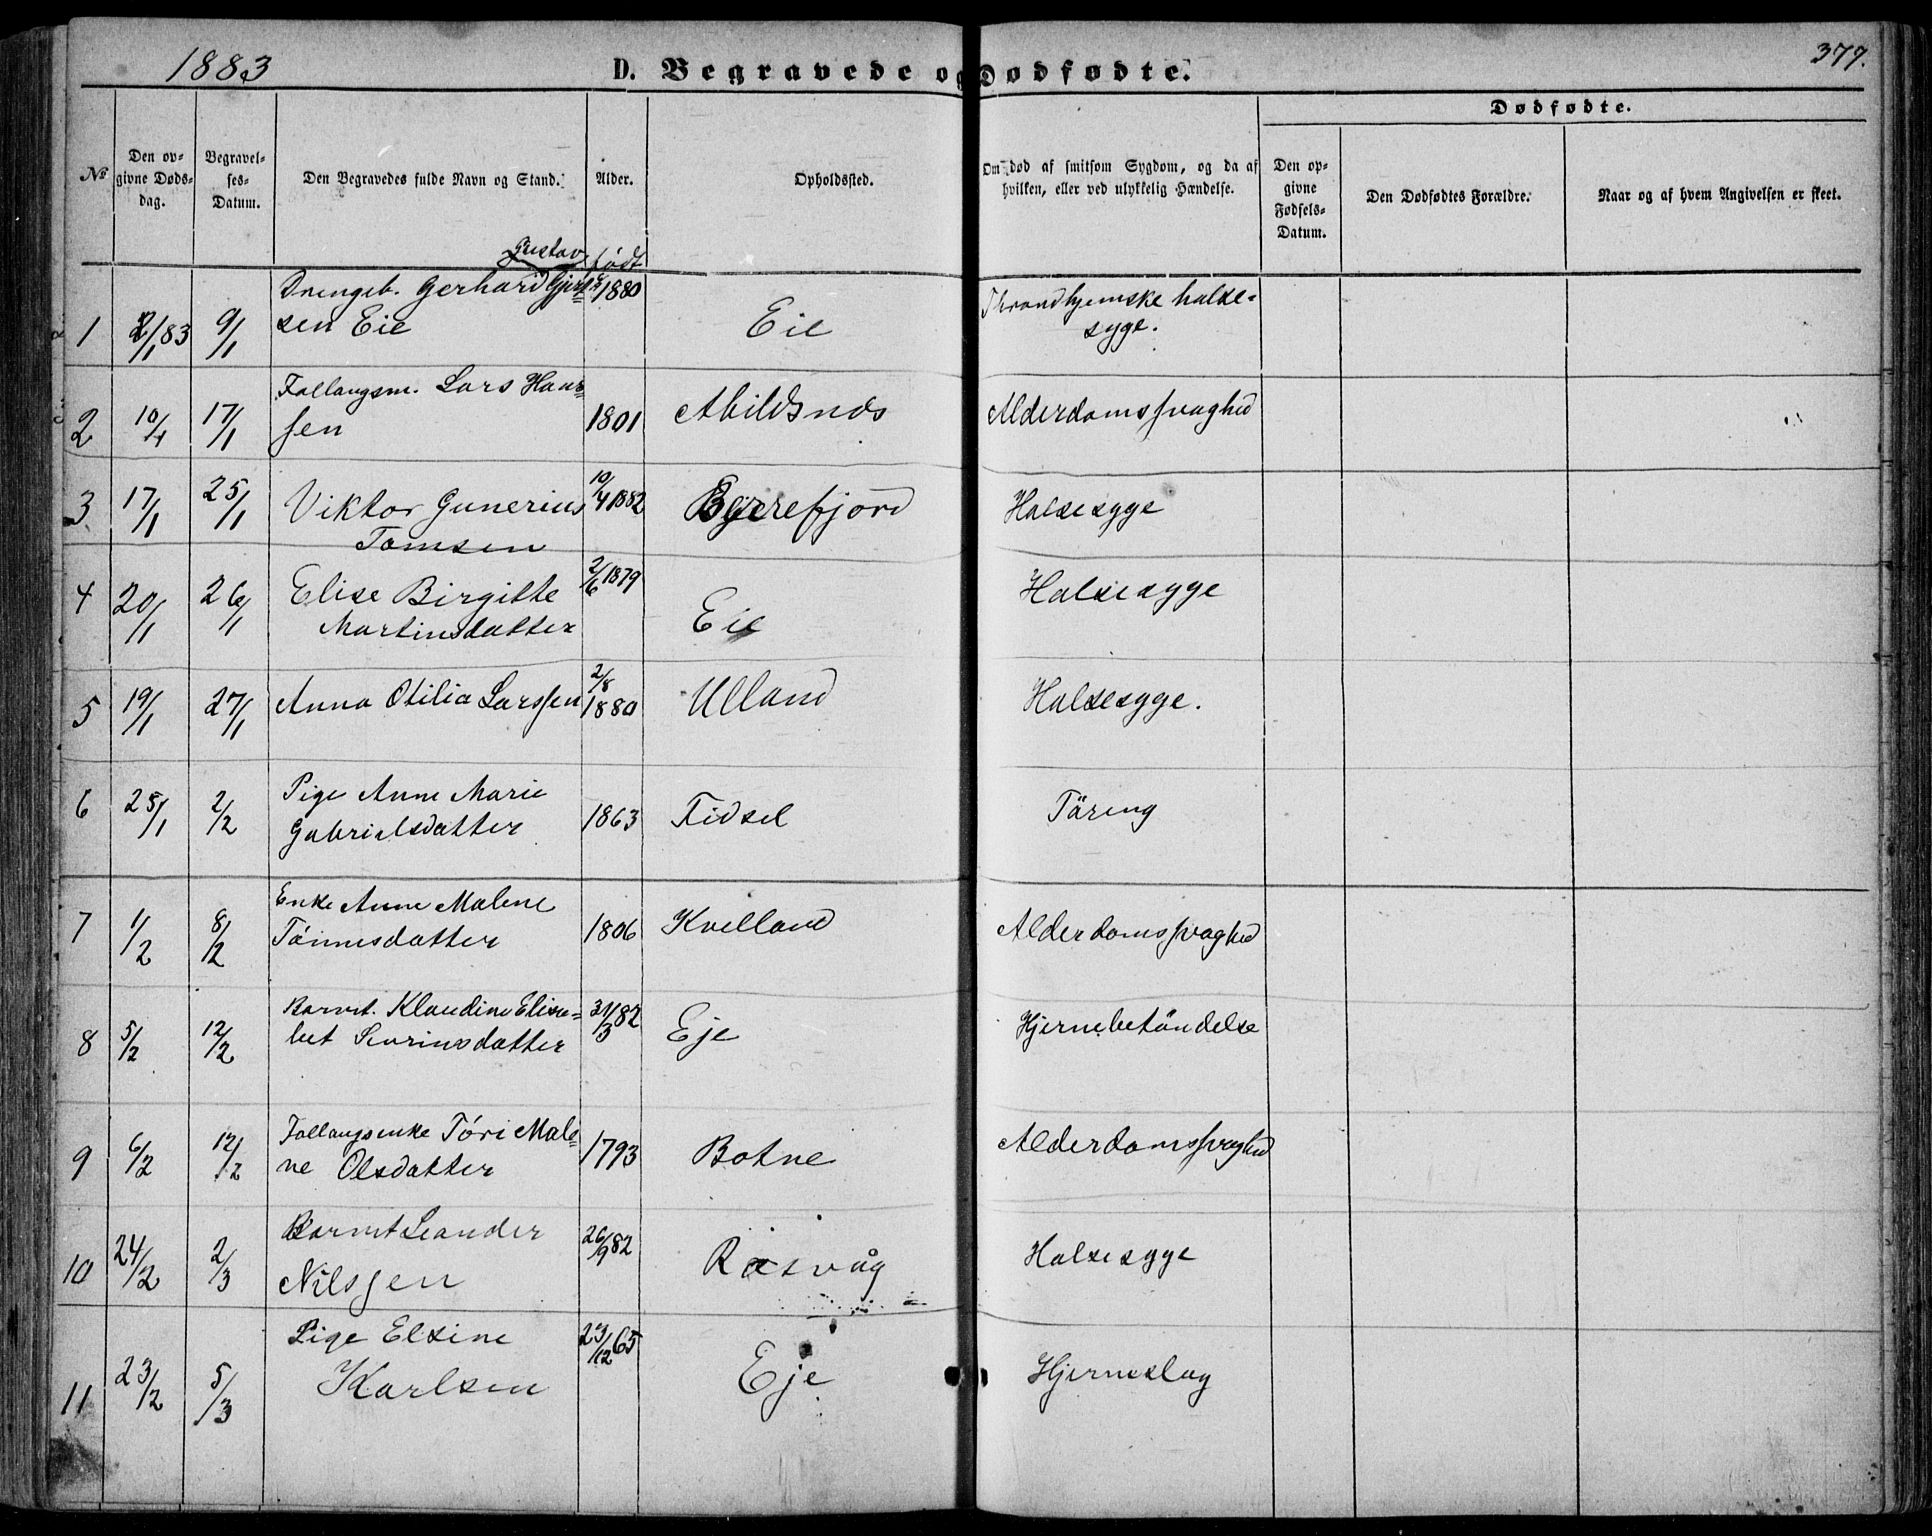 1883
D. Begravede og Dødfødte.
377.
Dødfødte.
№
Den opgivne Dødsdag.
Begravelses-Datum.
Den Begravedes fulde Navn og Stand.
Alder.
Opholdssted.
Om død af smitsom Sygdom, og da af hvilken, eller ved ulykkelig Hændelse.
Den opgivne Fødsels-Datum.
Den Dødfødtes Forældre.
Naar og af hvem Angivelsen er skeet.
Gustav født
1 2/1 83 9/1 Drengeb. Gerhard 1880 Eie Throndhjemske halse-
sen Eie syge.
2 10/1 17/1 Follaugsm. Lars Han= 1801 Abildsnes Alderdomssvaghed
sen
3 17/1 25/1 Viktor Gunerius 10/4 1882 fjord Halsesyge
Tomsen
4 20/1 26/1 Elise Birgitte 2/6 1879 Eie Halsesyge
Martinsdatter
5 19/1 27/1 Anna Otilia Larssen 2/8 1880 Ulland Halsesyge.
6 25/1 2/2 Pige Anne Marie 1863 Fidsel Täring
Gabrielsdatter
7 1/2 8/2 Enke Anne Malene 1806 Kvelland Alderdomssvaghed
Tönnesdatter
8 5/2 12/2 Barnet. Klaudine Elisa- 31/3 82 Eje Hjernebetändelse
bet Severinsdatter
9 6/2 12/2 Follaugsenke Töri Male= 1793 Botne Alderdomssvaghed
ne Olsdatter
10 24/2 2/3 Barnet Leander 26/9 82 Rasvåg Halsesyge
Nilssen
11 23/2 5/3 Pige Elsine 23/12 65 Eje Hjerneslag
Karlsen